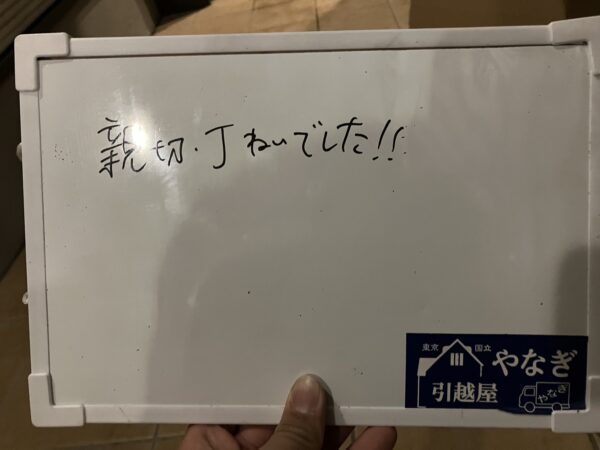 親切・丁ねいでした!!
東京 国立
やなぎ
引越屋
やなぎ